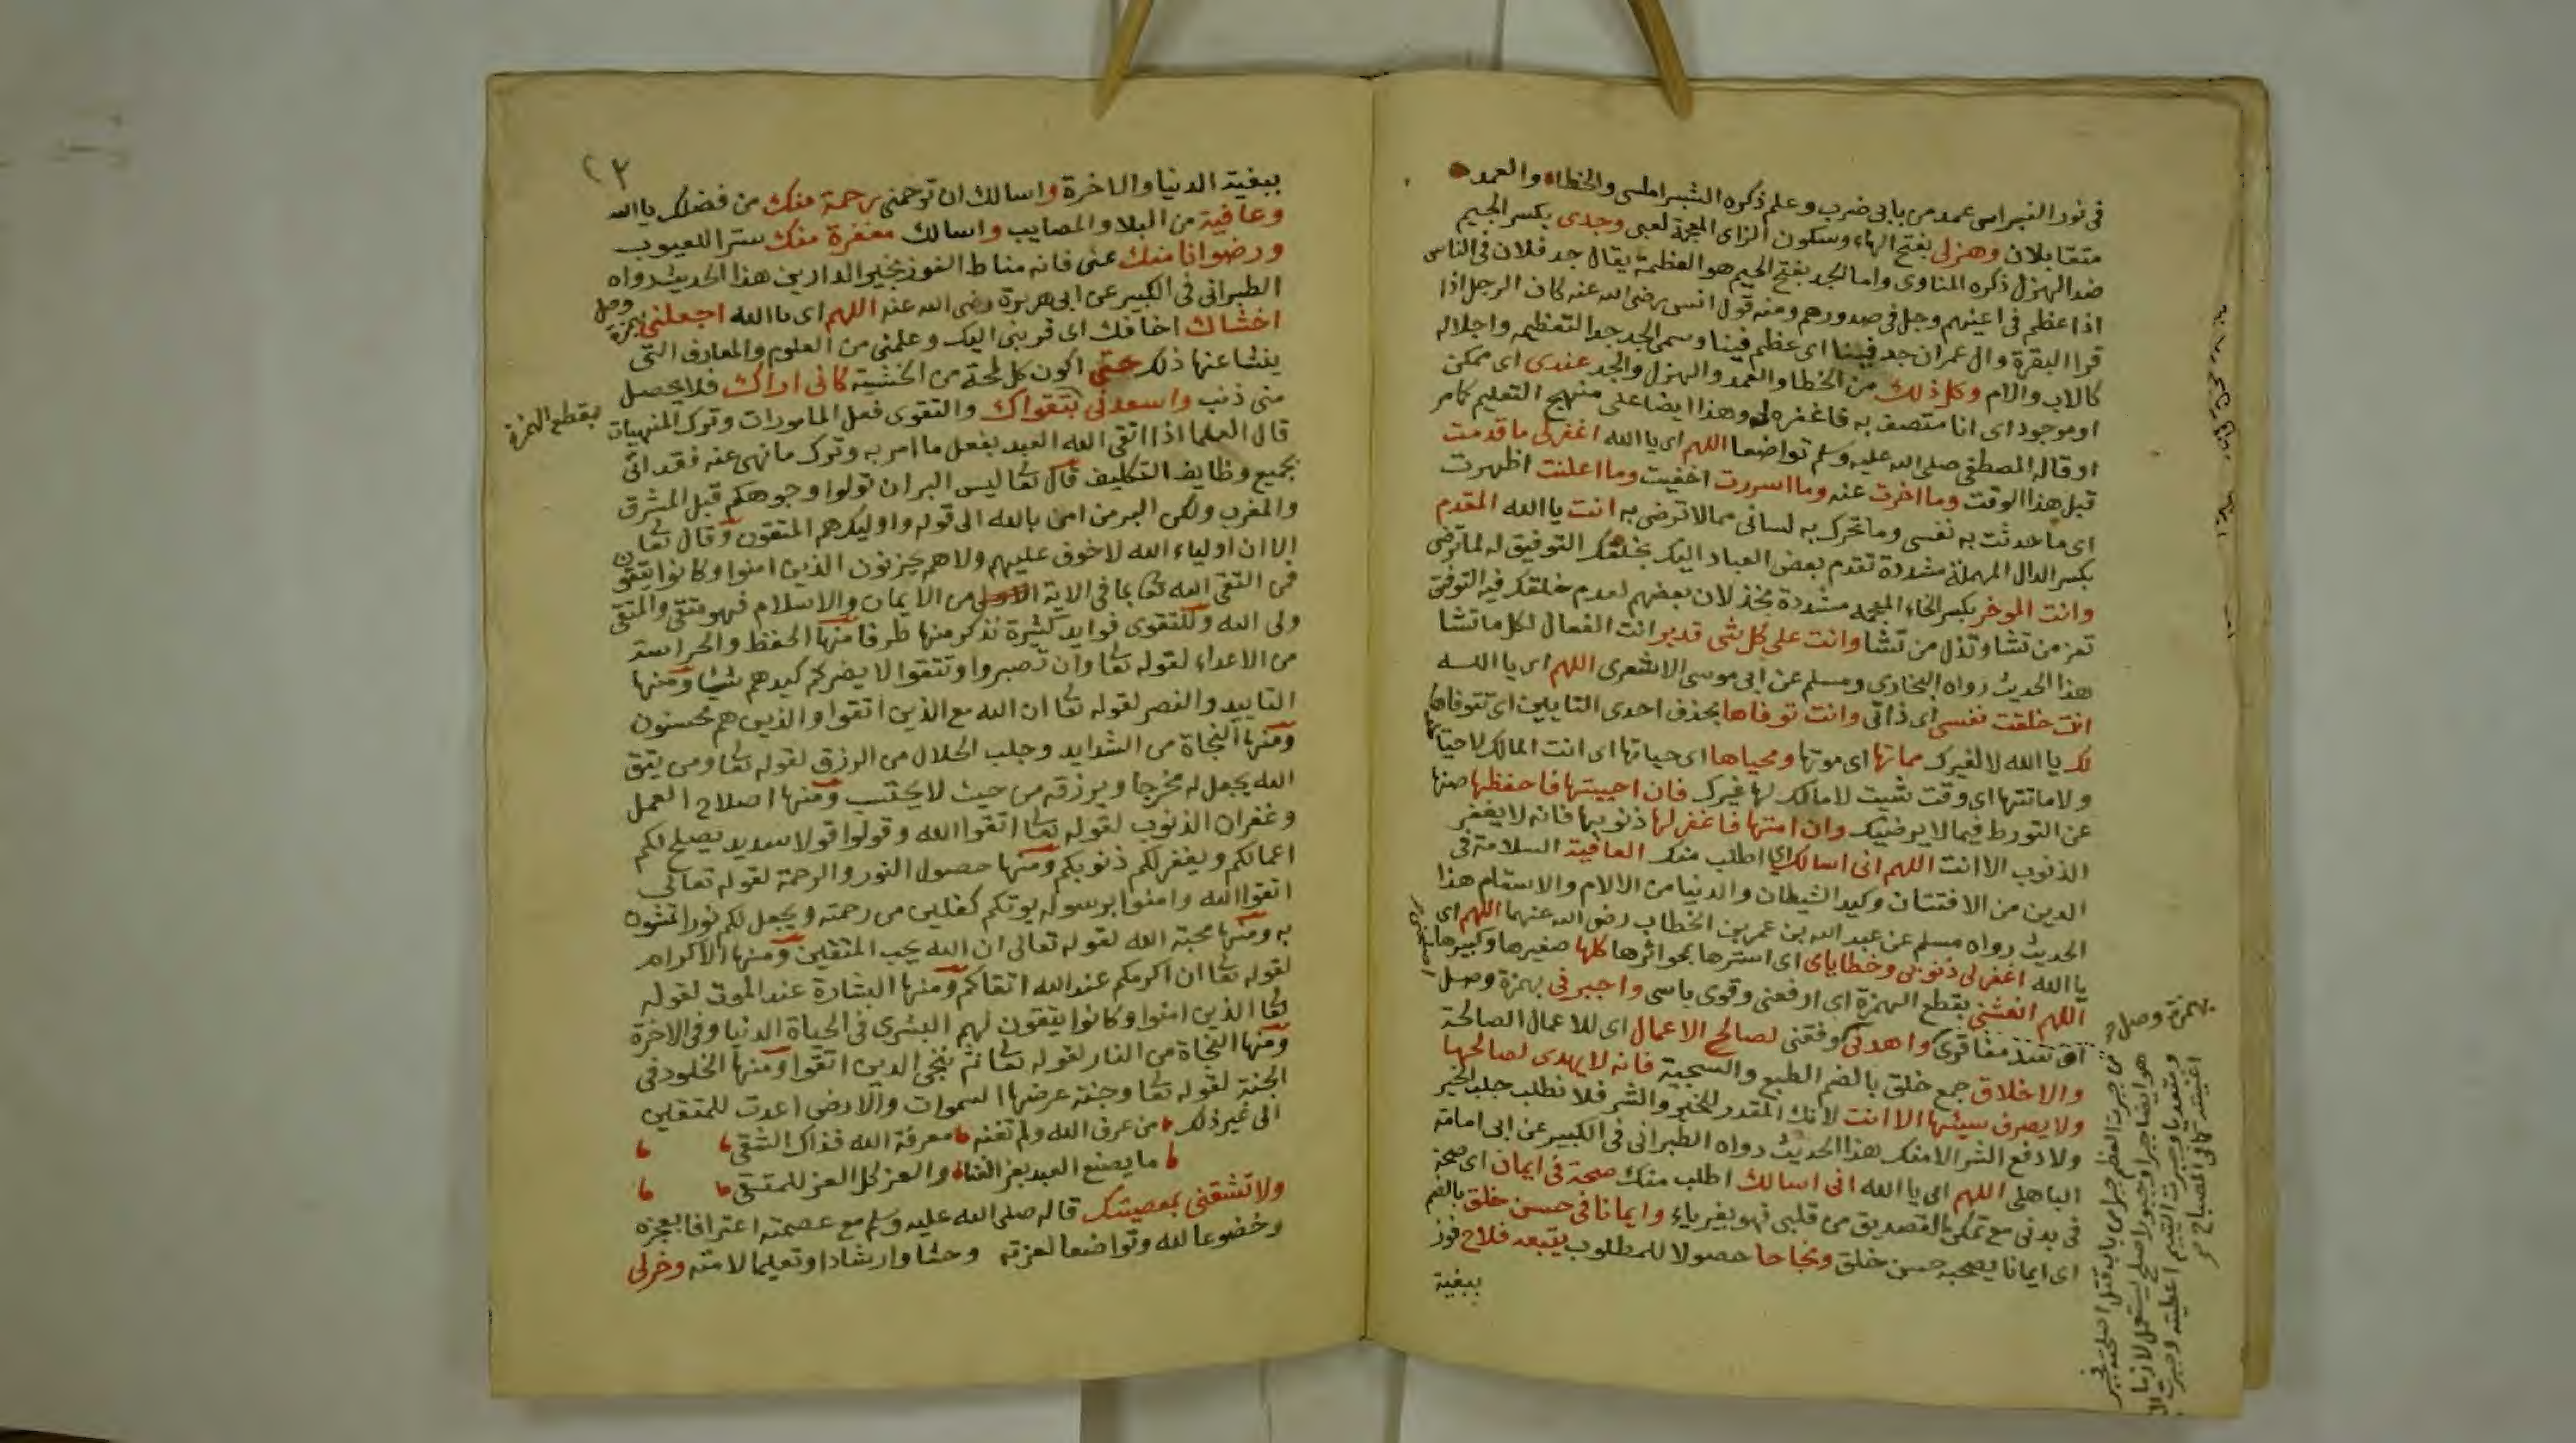 في نور النبراس عمد من بابي ضرب وعلم ذكره الشبراملسي والخطاء والعمد
متقابلان وهزلي بفتح الهاء وسكون الزاي المعجمة لعبي وجدي بكسر الجيم
ضد الهزل ذكره المناوي واما الجد بفتح الجيم هو العظمة يقال جد فلان في الناس
اذا عظم في اعينهم وجل في صدورهم ومنه قول انس رضي الله عنه كان الرجل اذا
قرا البقرة وال عمران جد فينا اي عظم فينا وسمي الجد جدا لتعظيمه واجلاله
كالاب والام وكل ذلك من الخطا والعمد والهزل والجد عندي اي ممكن
او موجود اي انا متصف به فاغفره لي وهذا ايضا على منهج التعليم كما مر
او قاله المصطفى صلى الله عليه وسلم تواضعا اللهم اي يا الله اغفر لي ما قدمت
قبل هذا الوقت وما اخرت عنه وما اسررت اخفيت وما اعلنت اظهرت
اي ما حدثت به نفسي وما تحرك به لساني مما لا ترضى به انت يا الله المقدم
بكسر الدال المهملة مشددة تقدم بعض العباد اليك بخلقك التوفيق له لما ترضى
وانت الموخر بكسر الخاء المعجمه مشددة بخذلان بعضهم لعدم خلقك فيه التوفيق
تعز من تشا وتذل من تشا وانت على كل شي قدير انت الفعال لكل ما تشا
هذا الحديث رواه البخاري ومسلم عن ابي موسى الاشعري اللهم اي يا الله
انت خلقت نفسي اي ذاتي وانت توفاها بحذف احدى التايين اي تتوفاها
لك يا الله لا لغيرك مماتها اي موتها ومحياها اي حياتها اي انت المالك لاحيائها
ولاماتتها اي وقت شيت لا مالك لها غيرك فان احييتها فاحفظها صنها
عن التورط فيما لا يرضيك وان امتها فاغفر لها ذنوبها فانه لا يغفر
الذنوب الا انت اللهم اني اسالك اي اطلب منك العافية السلامة في
الدين من الافتتان وكيد الشيطان والدنيا من الالام والاسقام هذا
الحديث رواه مسلم عن عبد الله بن عمر بن الخطاب رضي الله عنهما اللهم اي
يا الله اغفر لي ذنوبي وخطاياي اي استرها بمحو اثرها كلها صغيرها وكبيرها
اللهم انعشني بقطع الهمزة اي ارفعني وقوي باسي واجبرني بهمزة وصل
اي سد مفاقري واهدني وفقني لصالح الاعمال اي للاعمال الصالحة
والاخلاق جمع خلق بالضم الطبع والسجية فانه لا يهدي لصالحها
ولا يصرف سيئها الا انت لانك المقدر للخير والشر فلا نطلب جلب الخير
ولا دفع الشر الا منك هذا الحديث رواه الطبراني في الكبير عن ابي امامة
الباهلي اللهم اي يا الله اني اسالك اطلب منك صحة في ايمان اي صحة
في بدني مع تمكن التصديق من قلبي فهو بغير ياء وايمانا في حسن خلق بالضم
اي ايمانا يصحبه حسن خلق ونجاحا حصولا للمطلوب يتبعه فلاح فوز
ببغية
بهمزة وصل
من جبرت العظم جبرا من باب قتل اصلحته فجبر
هو ايضا جبرا وجبورا صلح يستعمل لازما
ومتعديا وجبرت اليتيم اعطيته وجبرت ال
اغنيته كما في المصباح
٢٣
ببغية الدنيا والاخرة واسالك ان ترحمني برحمة منك من فضلك يا الله
وعافية من البلا والمصايب واسالك مغفرة منك سترا للعيوب
ورضوانا منك عني فانه مناط الفوز بخير الدارين هذا الحديث رواه
الطبراني في الكبير عن ابي هريرة رضي الله عنه اللهم اي يا الله اجعلني بهمزة وصل
اخشاك اخافك اي قربني اليك وعلمني من العلوم والمعارف التي
ينشا عنها ذلك حتى اكون كل لمحة من الخشية كاني اراك فلا يحصل
مني ذنب واسعدني بتقواك والتقوى فعل المامورات وترك المنهيات
بقطع الهمزة
قال العلما اذا اتقى الله العبد بفعل ما امر به وترك ما نهي عنه فقد اتى
بجميع وظايف التكليف قال تعا ليس البر ان تولوا وجوهكم قبل المشرق
والمغرب ولكن البر من امن بالله الى قوله واوليك هم المتقون وقال تعا
الا ان اولياء الله لا خوف عليهم ولا هم يحزنون الذين امنوا وكانوا يتقون
فمن اتقى الله تعا بما في الاية الاولى من الايمان والاسلام فهو متقي والمتقي
ولي الله وللتقوى فوايد كثيرة نذكر منها طرفا منها الحفظ والحراسة
من الاعداء لقوله تعا وان تصبروا وتتقوا لا يضركم كيدهم شيا ومنها
التاييد والنصر لقوله تعا ان الله مع الذين اتقوا والذين هم محسنون
ومنها النجاة من الشدايد وجلب الحلال من الرزق لقوله تعا ومن يتق
الله يجعل له مخرجا ويرزقه من حيث لا يحتسب ومنها اصلاح العمل
وغفران الذنوب لقوله تعا اتقوا الله وقولوا قولا سديد يصلح لكم
اعمالكم ويغفر لكم ذنوبكم ومنها حصول النور والرحمة لقوله تعالى
اتقوا الله وامنوا برسوله يوتكم كفلين من رحمته ويجعل لكم نورا تمشون
به ومنها محبة الله لقوله تعالى ان الله يحب المتقين ومنها الاكرام
لقوله تعا ان اكرمكم عند الله اتقاكم ومنها البشارة عند الموت لقوله
تعا الذين امنوا وكانوا يتقون لهم البشرى في الحياة الدنيا وفي الاخرة
ومنها النجاة من النار لقوله تعا ثم ننجي الذين اتقوا ومنها الخلود في
الجنة لقوله تعا وجنة عرضها السموات والارض اعدت للمتقين
الى غير ذلك من عرف الله ولم تغنه معرفة الله فذاك الشقي
ما يصنع العبد بعز الغنا والعز كل العز للمتقي
ولا تشقني بمعصيتك قاله صلى الله عليه وسلم مع عصمته اعترافا بعجزه
وخضوعا لله وتواضعا لعزته وحثا وارشادا وتعليما لامته وخر لي